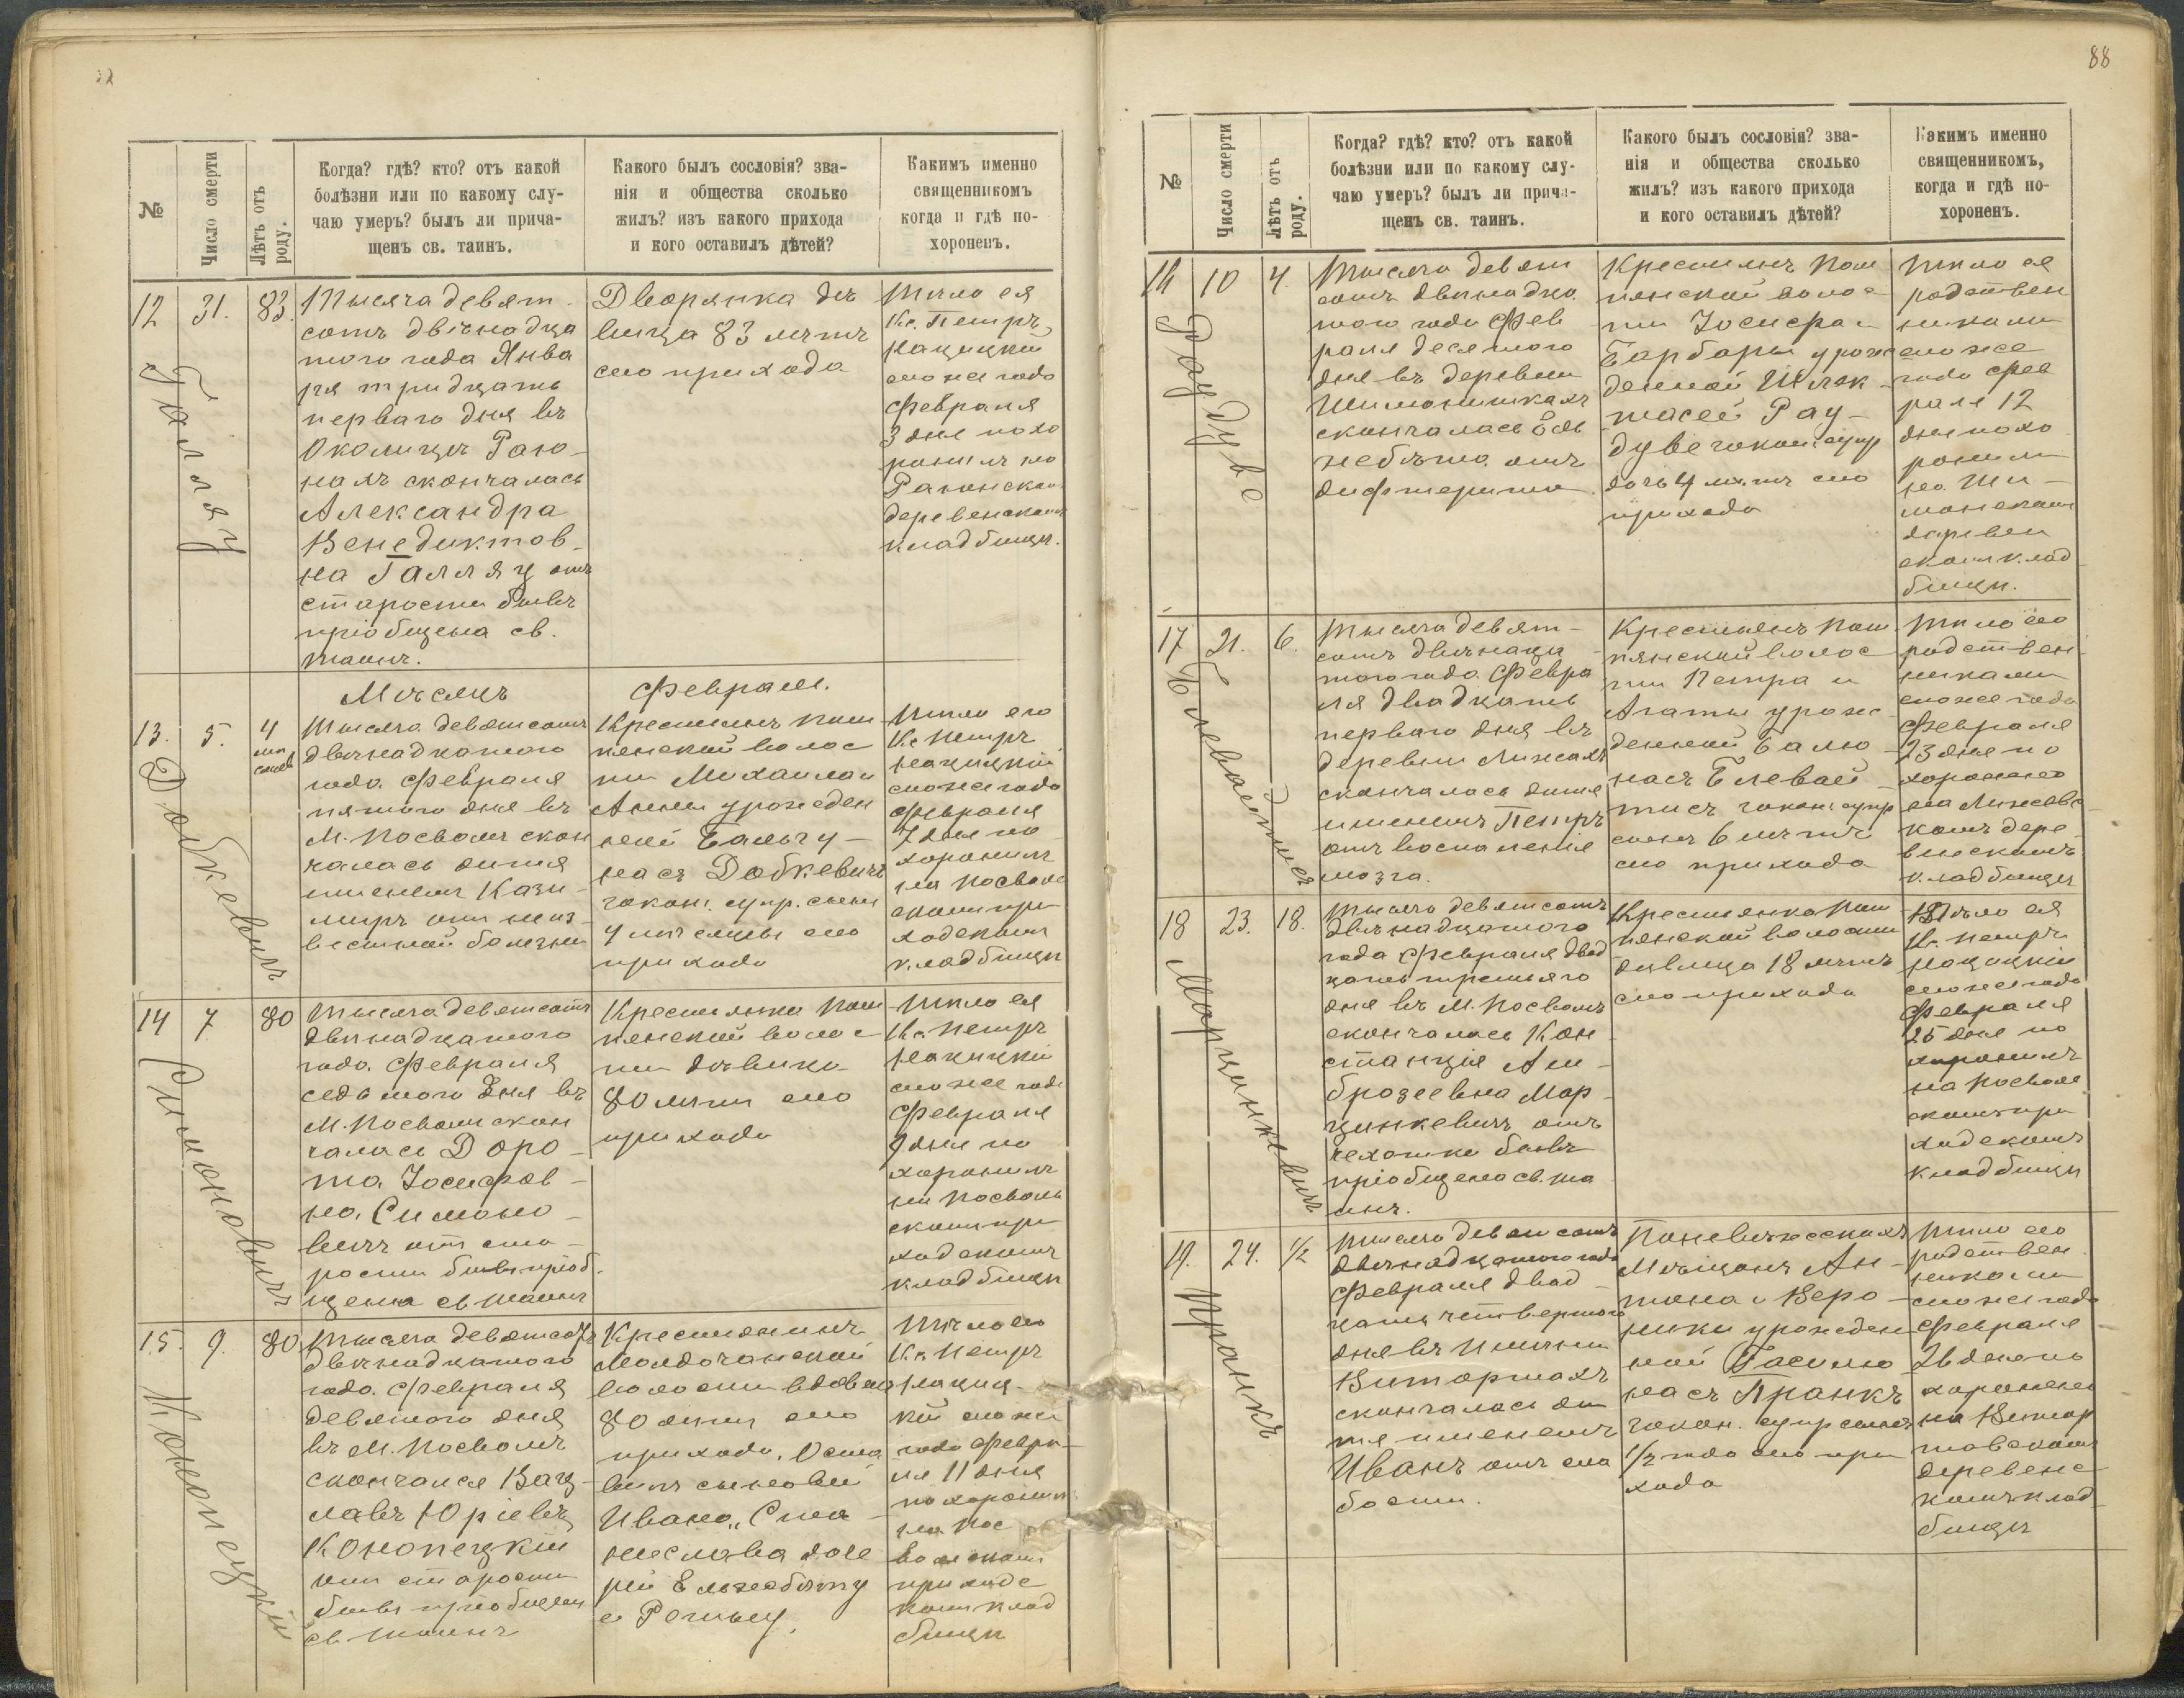 88
№
Число смерти
Лѣтъ отъ роду.
Когда? гдѣ? кто? отъ какой
болѣзни или по какому слу-
чаю умеръ? былъ ли прича-
щенъ св. таинъ.
Какого былъ сословія? зва-
нія и общества сколько
жилъ? изъ какого прихода
и кого оставилъ дѣтей?
Какимъ именно
священникомъ
когда и гдѣ по-
хороненъ.
12
31.
83.
Галляу
Тысяча девят-
сотъ двѣнадца
таго года Янва
ря тридцать
перваго дня въ
Околицѣ Раю-
нахъ скончалась
Александра
Венедиктов-
на Галляу отъ
старости бывъ
пріобщена св.
таинъ.
Дворянка дѣ
вица 83 лѣтъ
сего прихода
Тѣло ея
Кс. Петръ
Нацицкій
сего же года
Февраля
3 дня похо
ронилъ на
Раюнскомъ
деревенскомъ
кладбищѣ.
Мѣсяцъ Февраль.
13.
5.
4
мѣ
сяцев
Добкевичъ
Тысяча девятсотъ
двѣнадцатого
года Февраля
пятого дня въ
М. Посволѣ скон
чалась дитя
именемъ Кази-
миръ отъ неиз-
вестной болезни
Крестьянъ Пош
пянской волос
ти Михаила и
Анны урожден
ней Бальчу-
насъ Добкевичъ
закон. супр. сынъ
4 мѣсяцы сего
прихода
Тѣло его
Кс. Петръ
Нацицкій
сего же года
Февраля
7 дня по
хоронилъ
на Посволь
скомъ при
ходскомъ
кладбищѣ
14
7
80
Симоновичъ
Тысяча девятсотъ
двѣнадцатого
года Февраля
седьмого дня въ
М. Посволѣ скон
чалась Доро-
та Іосифов-
на Симоно-
вичъ отъ ста-
рости бывъ пріоб-
щена св таинъ
Крестьянка Пош
пянской волос
ти дѣвица
80 лѣтъ сего
прихода
Тѣло ея
Кс. Петръ
Нацицкій
сего же года
Февраля
9 дня по
хоронилъ
на Посволь
скомъ при
ходскомъ
кладбищѣ
15.
9.
80
Конопецкій
Тысяча девятсотъ
двѣнадцатого
года Февраля
девятого дня
въ М. Посволѣ
скончался Вац-
лавъ Юріевъ
Конопецкій
отъ старости
бывъ пріобщен
св таинъ
Крестянинъ
волости вдовецъ
80 лѣтъ сего
прихода. Оста
вилъ сыновей
Ивана, Ста-
нислава доче
рей Ельжбету
и
Тѣло его
Кс. Петръ
Нациц-
кій сего же
года Февра-
ля 11 дня
похоронилъ
на Пос
вольскомъ
приходс
комъ клад
бищѣ
№
Число смерти
Лѣтъ отъ роду.
Когда? гдѣ? кто? отъ какой
болѣзни или по какому слу-
чаю умеръ? былъ ли прича-
щенъ св. таинъ.
Какого былъ сословія? зва-
нія и общества сколько
жилъ? изъ какого прихода
и кого оставилъ дѣтей?
Какимъ именно
священникомъ,
когда и гдѣ по-
хороненъ.
10
4.
Раудуве
Тысяча девят
сотъ двѣнадца
того года Фев
раля десятого
дня въ деревни
Шимонишкахъ
скончалась Ель
жебѣта отъ
дифтерита.
Крестьянъ Пош
пянской волос
ти Іосифа и
Барбары урож
денной
Рау-
дуве закон. супр
дочь 4 лѣтъ сего
прихода
Тѣло ея
родствен
никами
сего же
года Фев
раля 12
дня похо
ронили
на Ши-
монскомъ
деревен
скомъ клад
бищѣ.
17
21.
6.
Тысяча девят-
сотъ двѣнаца
того года Февра
ля двадцать
перваго дня въ
деревни
скончалось дитя
именемъ Петръ
отъ воспаленія
мозга.
Крестьянъ Пош
пянской волос
ти Петра и
Агаты урож
денной Балю
насъ
закон. супр
сынъ 6 лѣтъ
сего прихода
Тѣло его
родствен
никами
сего же года
Февраля
23 дня по
хоронено
на
комъ дере
венскомъ
кладбищѣ
18
23.
18.
Марцинкевичъ
Тысяча девятсотъ
двѣнадцатого
года Февраля двад
цать третьяго
дня въ М. Посволѣ
скончалась Кон
станція Ам-
брозеевна Мар-
цинкевичъ отъ
чехотки бывъ
пріобщена св. та
инъ.
Крестьянка Пош
пянской волости
дѣвица 18 лѣтъ
сего прихода
Тѣло ея
Кс. Петръ
Нацицкій
сего же года
Февраля
25 дня по
хоронилъ
на Посволь
скомъ при
ходскомъ
кладбищѣ
19.
24.
1/2
Пранкъ
Тысяча девятсотъ
двѣнадцатого года
Февраля двад-
цать четвертого
дня въ Имѣніи
скончалась ди
тя именемъ
Иванъ отъ сла
бости.
Поневѣжескихъ
Мѣщанъ Ан-
тона и Веро-
ники урожден
ной
насъ Пранкъ
закон. супр сынъ
1/2 года сего при
хода
Тѣло его
родствен
никами
сего же года
Февраля
26 дня по
хоронено
на
деревенс
комъ клад
бищѣ